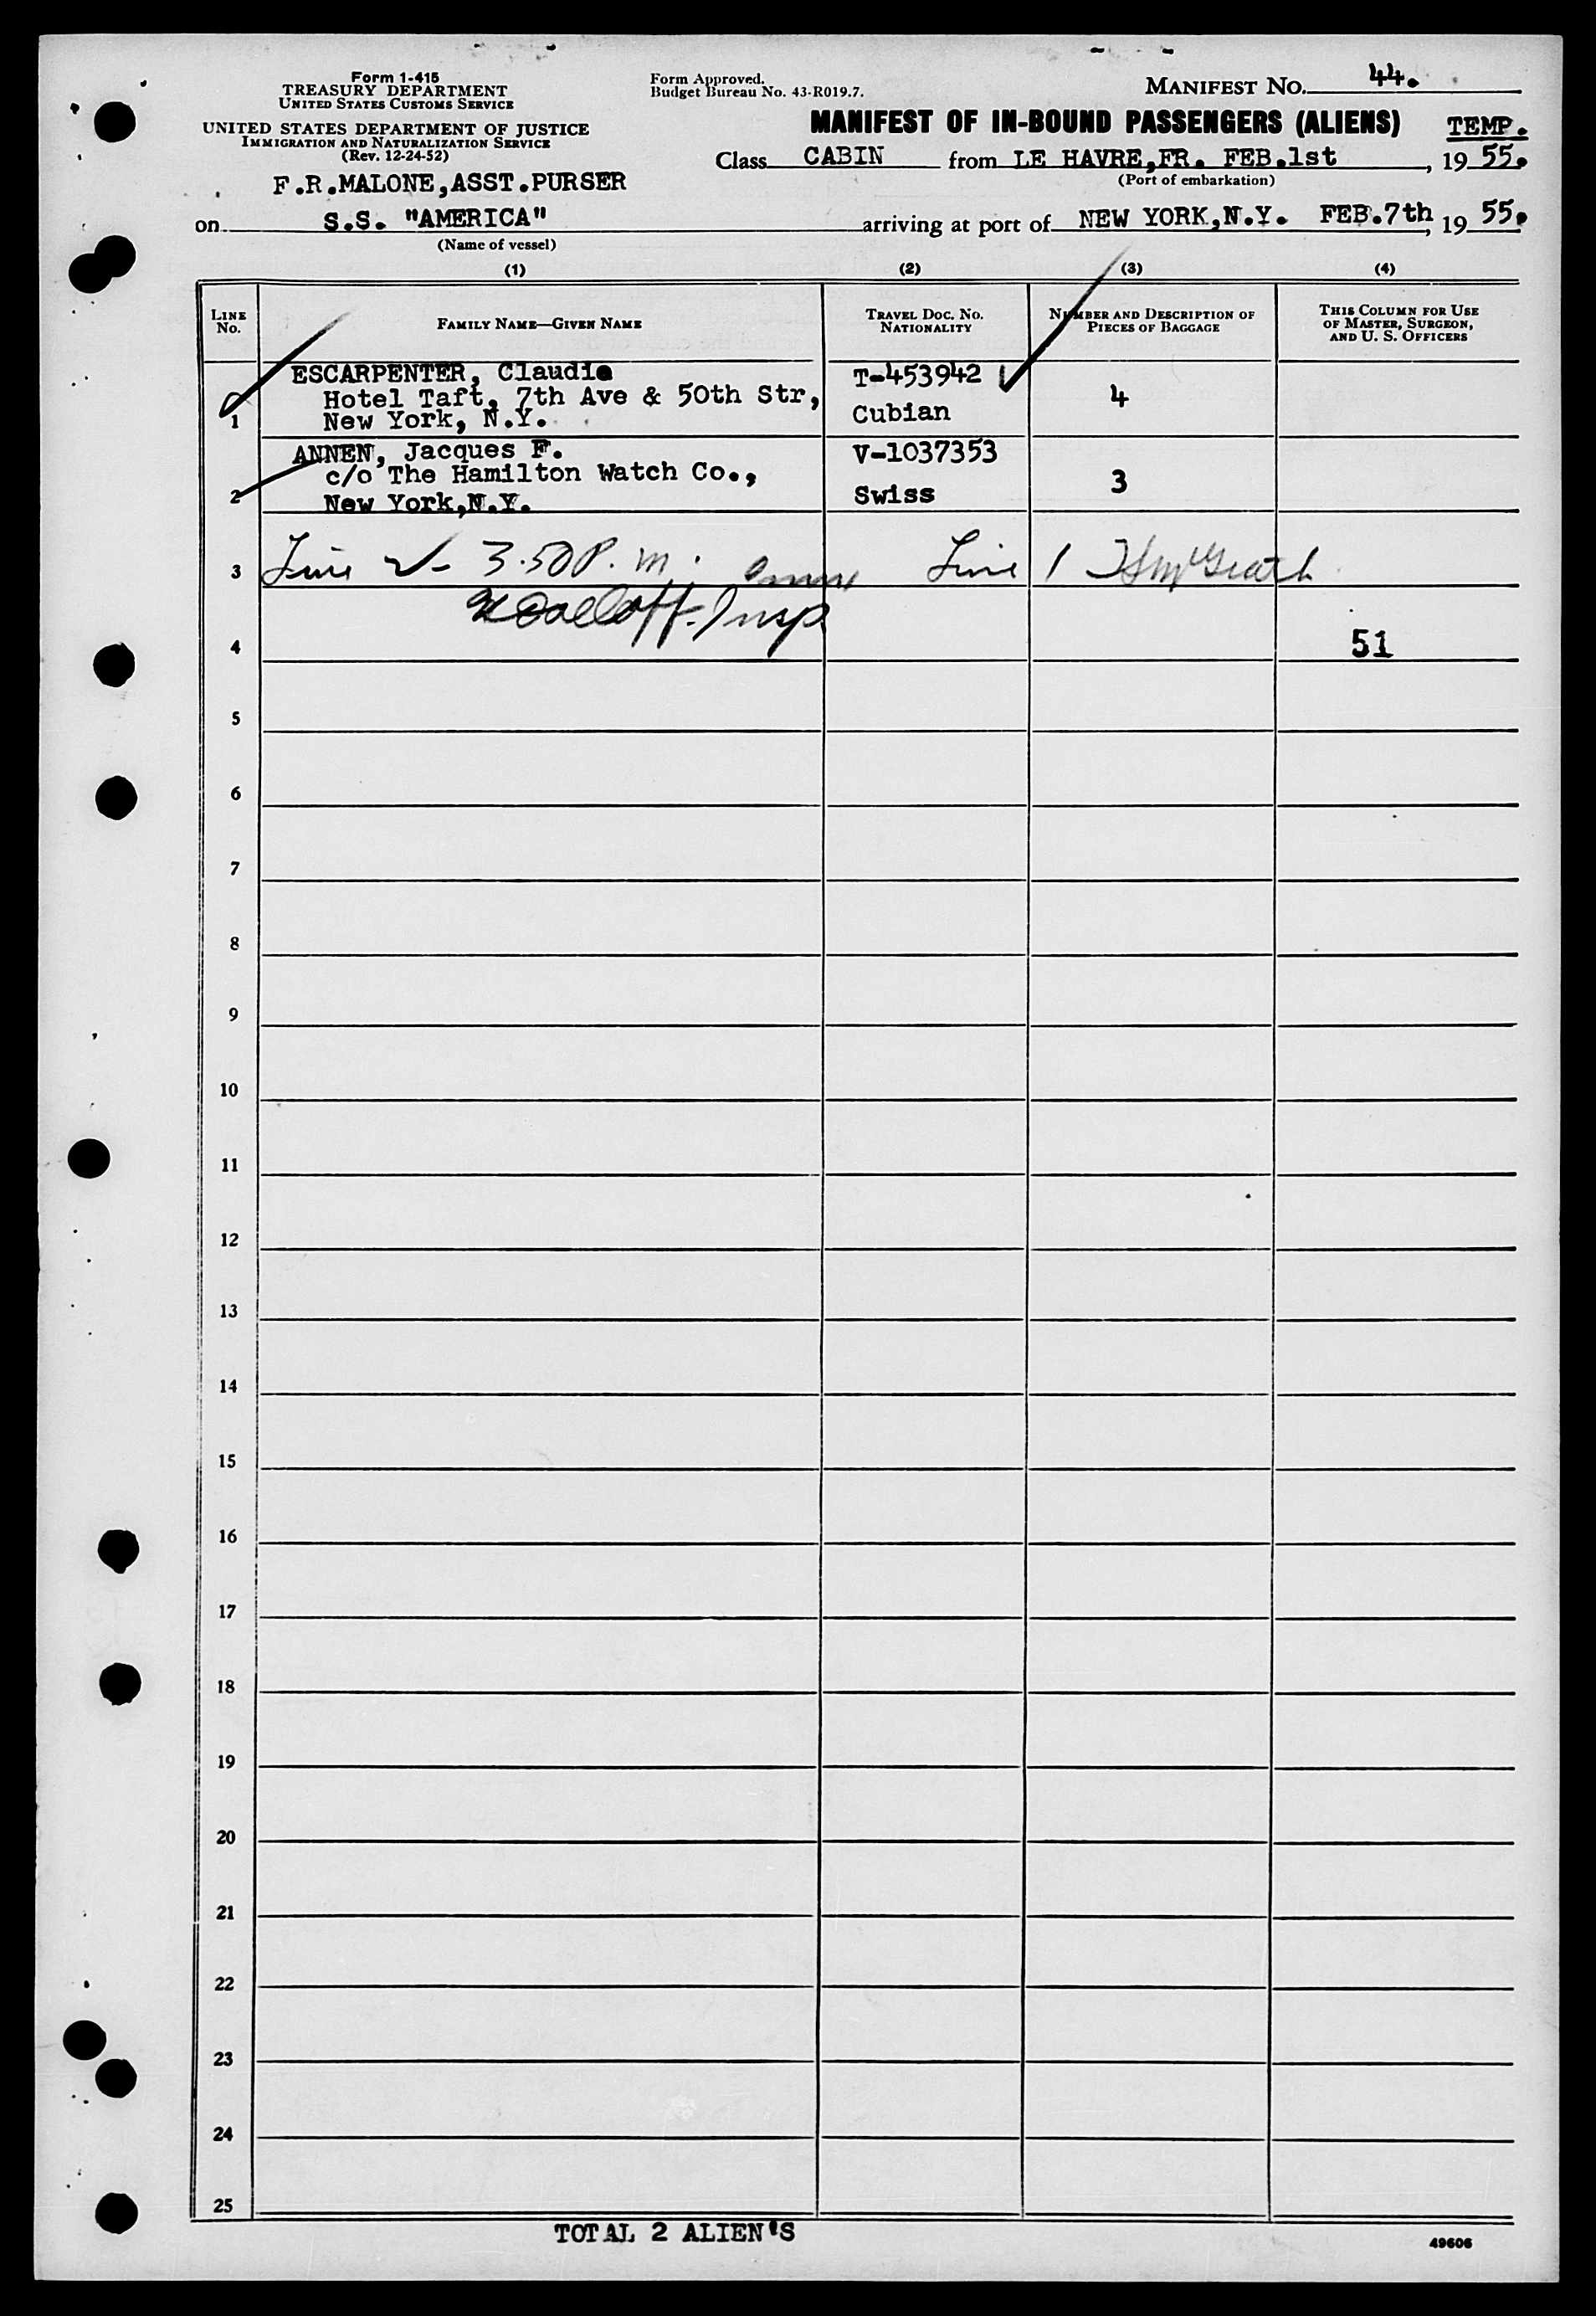 Form 1-415
TREASURY DEPARTMENT
UNITED STATES CUSTOMS SERVICE
UNITED STATES DEPARTMENT OF JUSTICE
IMMIGRATION AND NATURALIZATION SERVICE
(Rev. 12-24-52)
Form Approved.
Budget Bureau No. 43-R019.7.
MANIFEST NO. 44.
MANIFEST OF IN-BOUND PASSENGERS (ALIENS) TEMP.
Class CABIN from LE HAVRE,FR. FEB.1st, 19 55.
(Port of embarkation)
F.R.MALONE,ASST.PURSER
on S.S. "AMERICA" arriving at port of NEW YORK,N.Y. FEB.7th, 19 55.
(Name of vessel)
(1) (2) (3) (4)
LINE No. FAMILY NAME—GIVEN NAME TRAVEL DOC. NO. NATIONALITY NUMBER AND DESCRIPTION OF PIECES OF BAGGAGE THIS COLUMN FOR USE OF MASTER, SURGEON, AND U. S. OFFICERS
ESCARPENTER, Claudio T-453942
Hotel Taft, 7th Ave & 50th Str, 4
1 New York, N.Y. Cubian
ANNEN, Jacques F. V-1037353
c/o The Hamilton Watch Co., 3
2 New York,N.Y. Swiss
3 Line 2 - 3.50 P.m. Line 1
Insp
4 51
5
6
7
8
9
10
11
12
13
14
15
16
17
18
19
20
21
22
23
24
25
TOTAL 2 ALIEN'S
49606